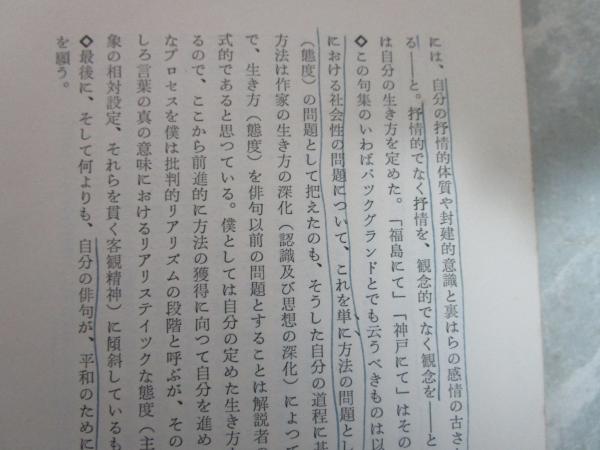 には、自分の抒情的体質や封建的意識と裏はらの感情の古さ
る――と。抒情的でなく抒情を、観念的でなく観念を――と
は自分の生き方を定めた。「福島にて」「神戸にて」はその
◇この句集のいわばバツクグランドとでも云うべきものは以
における社会性の問題について、これを単に方法の問題とし
（態度）の問題として把えたのも、そうした自分の道程に基
方法は作家の生き方の深化（認識及び思想の深化）によつて
で、生き方（態度）を俳句以前の問題とすることは解説者
式的であると思つている。僕としては自分の定めた生き方
るので、ここから前進的に方法の獲得に向つて自分を進め
なプロセスを僕は批判的リアリズムの段階と呼ぶが、その
しろ言葉の真の意味におけるリアリステイツクな態度（主
象の相対設定、それらを貫く客観精神）に傾斜しているも
◇最後に、そして何よりも、自分の俳句が、平和のために
を願う。